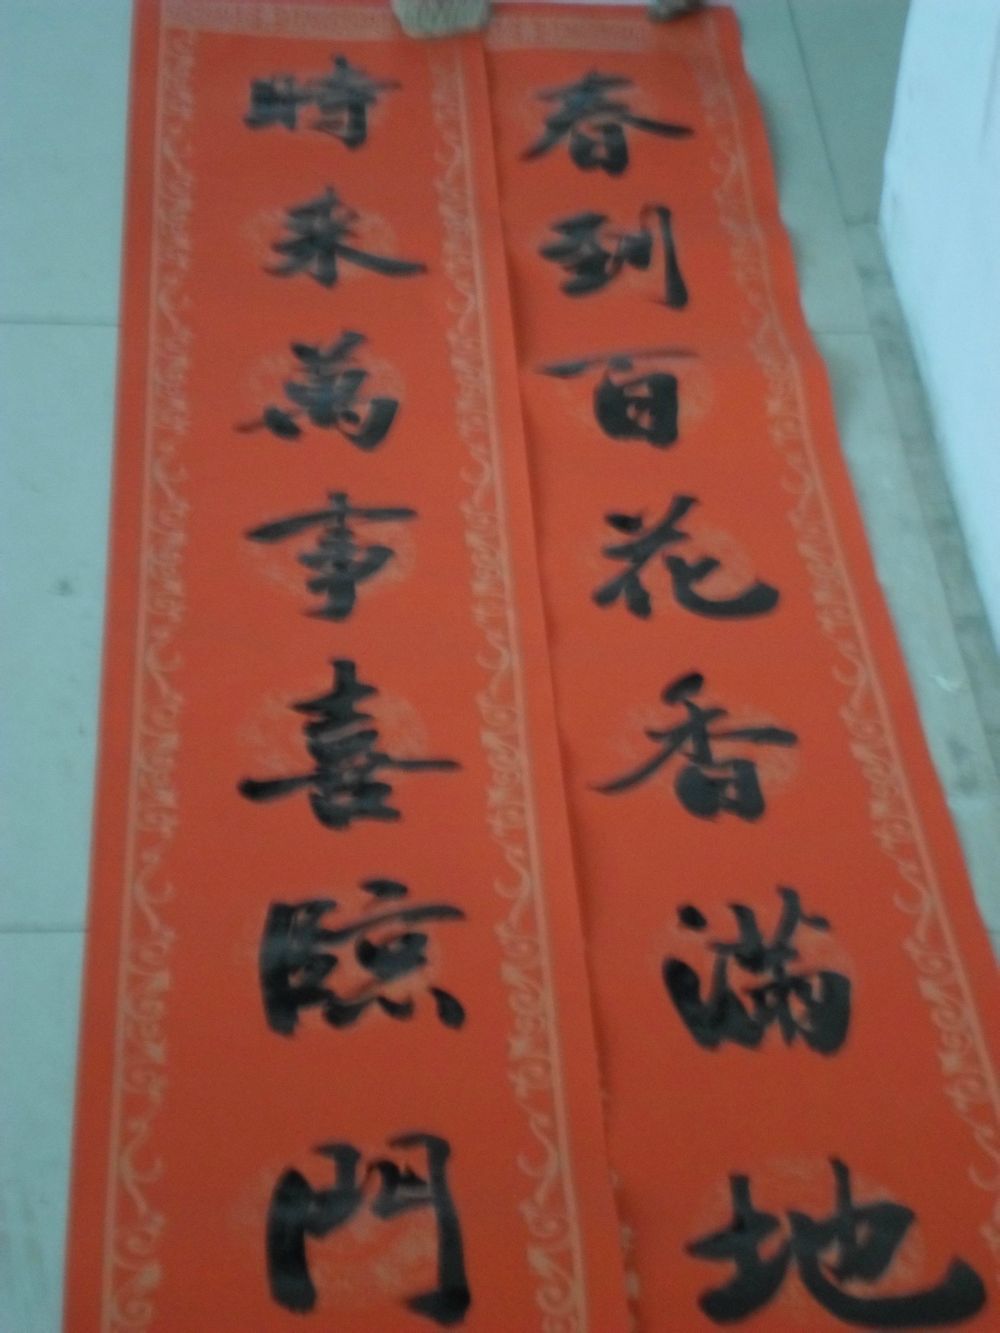 春到百花香满地
時来萬事喜臨門